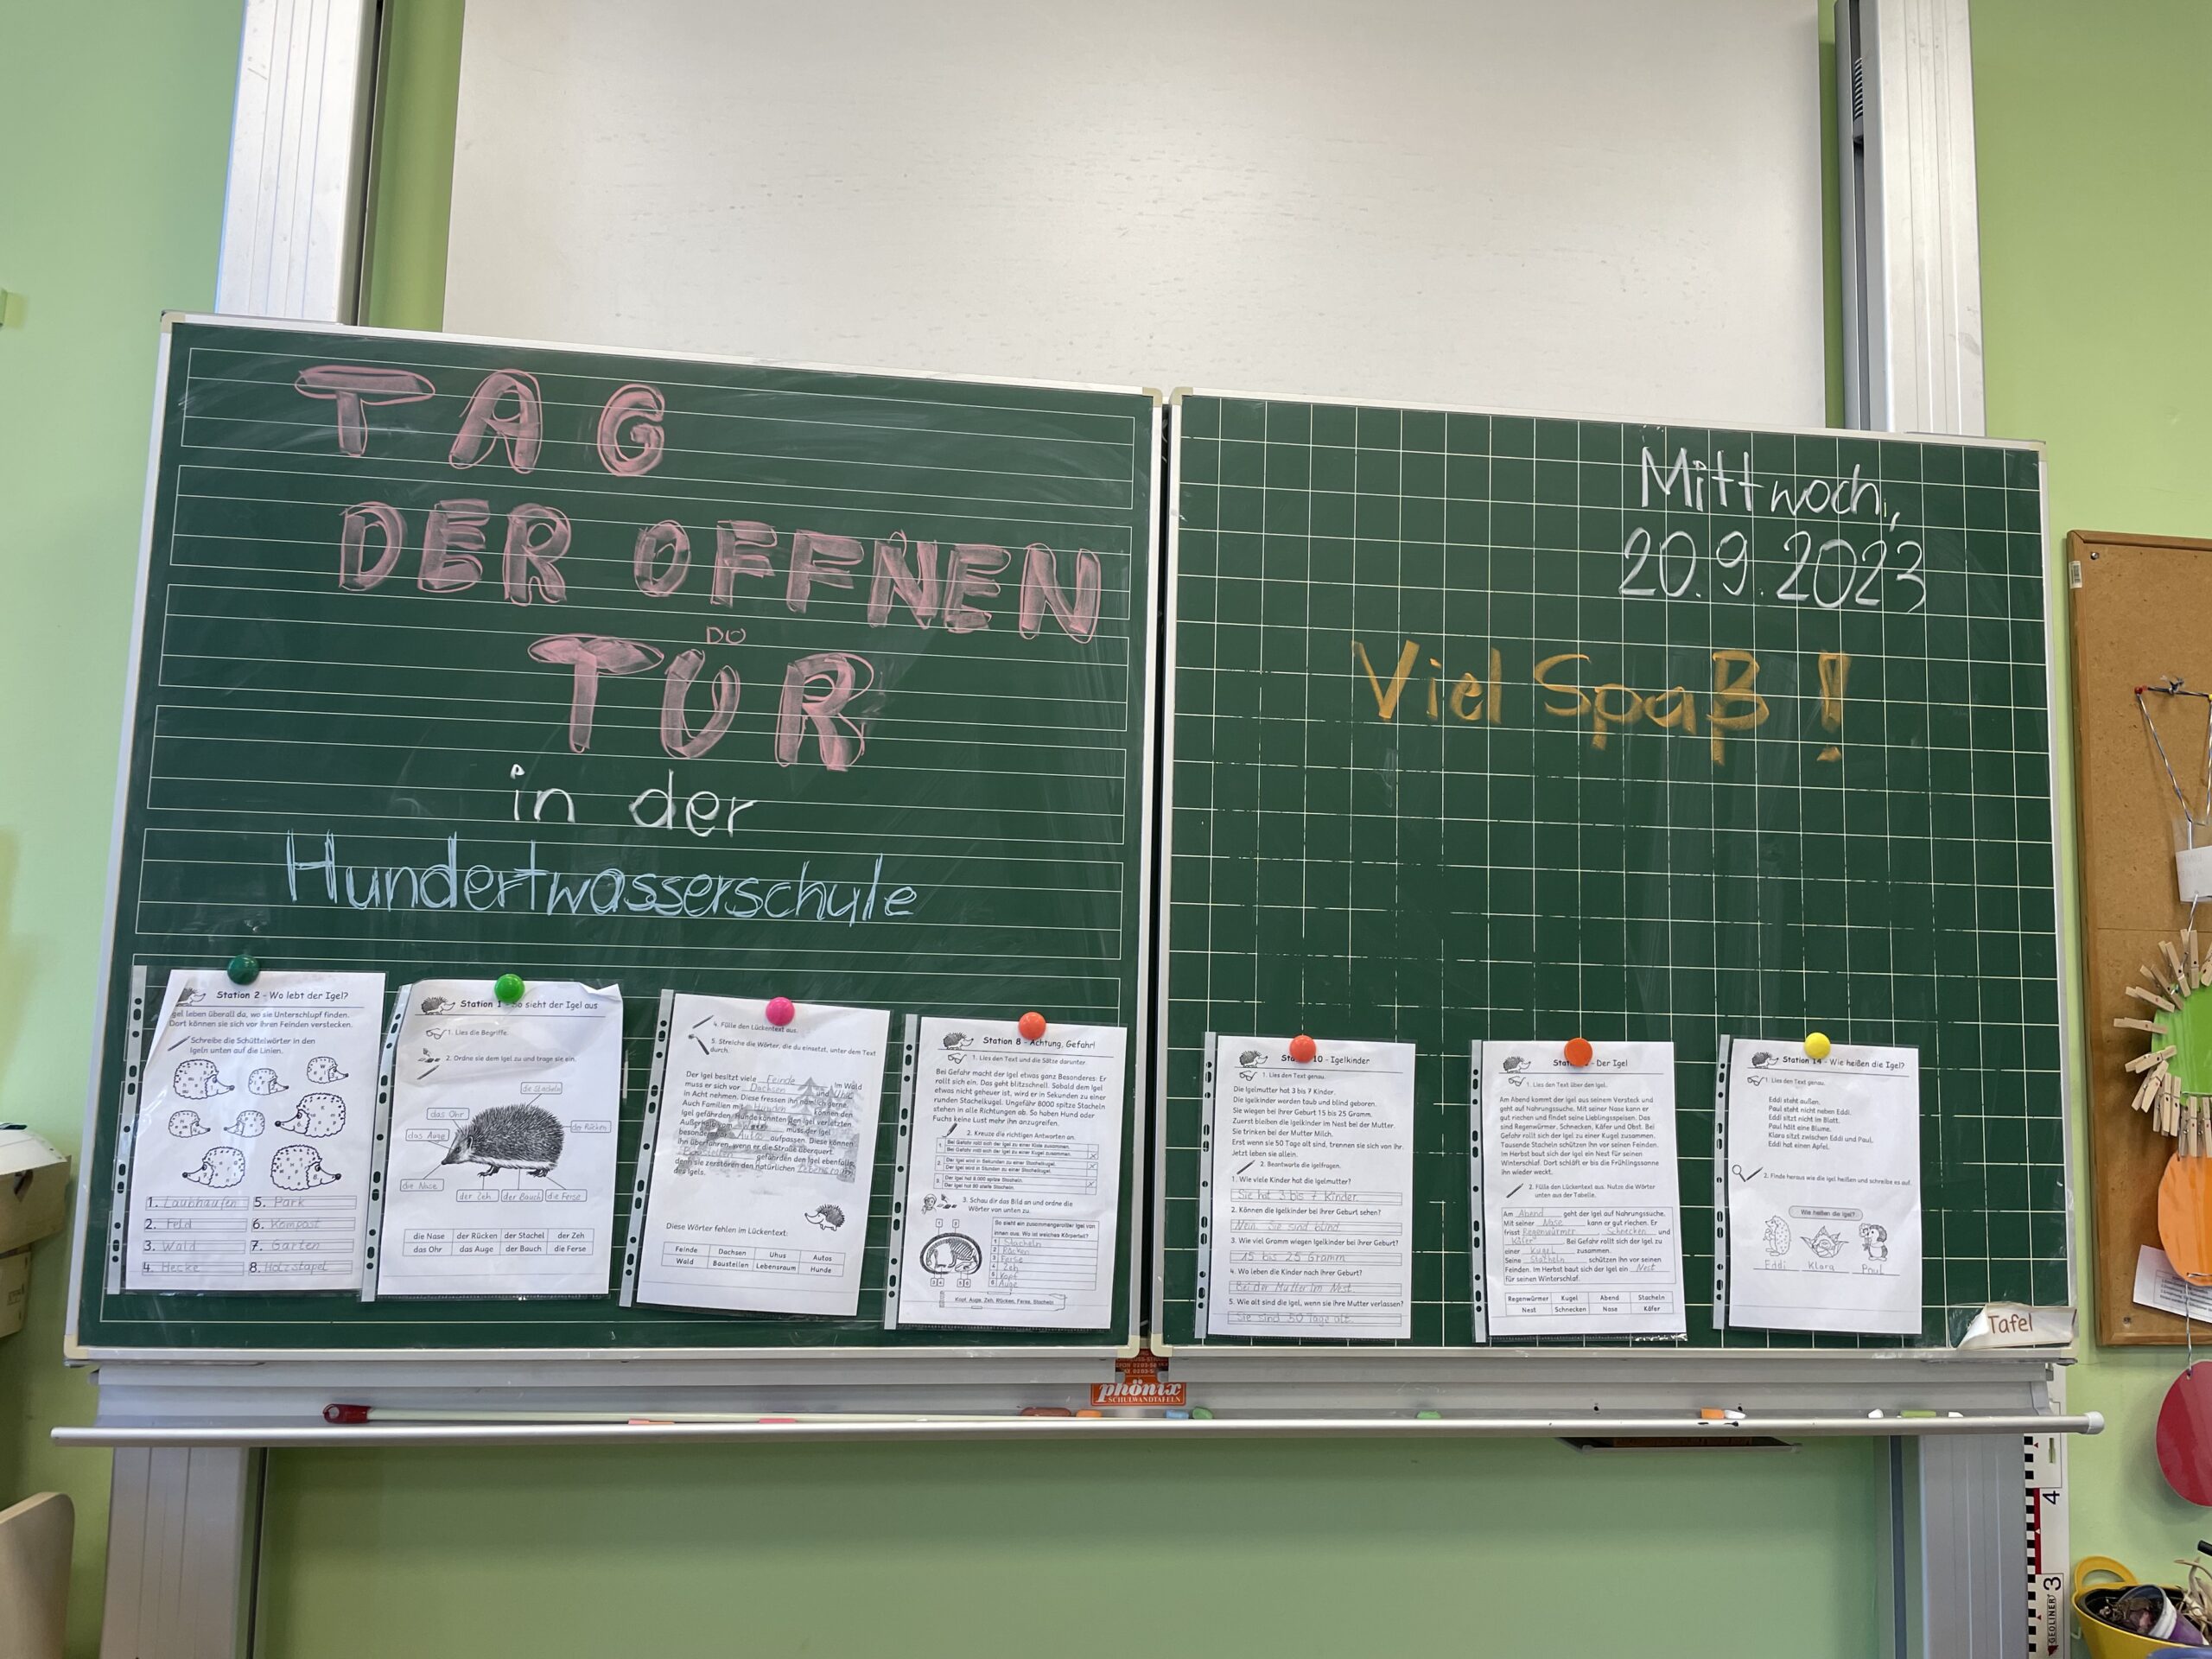 TAG
DER OFFNEN
TÜR
in der
Hundertwasserschule
Mittwoch,
20.9.2023
Viel Spaß!
Station 2 - Wo lebt der Igel?
Igel leben überall da, wo sie Unterschlupf finden.
Dort können sie sich vor ihren Feinden verstecken.
Schreibe die Schüttelwörter in den
Igeln unten auf die Linien.
1. Laubhaufen 5. Park
2. Feld 6. Kompost
3. Wald 7. Garten
4. Hecke 8. Holzstapel
Station 1 - So sieht der Igel aus
1. Lies die Begriffe.
2. Ordne sie dem Igel zu und trage sie ein.
die Stacheln
das Ohr
der Rücken
das Auge
die Nase
der Zeh der Bauch die Ferse
die Nase der Rücken der Stachel der Zeh
das Ohr das Auge der Bauch die Ferse
4. Fülle den Lückentext aus.
5. Streiche die Wörter, die du einsetzt, unter dem Text
durch.
Der Igel besitzt viele Feinde. Im Wald
muss er sich vor Dachsen und Uhus
in Acht nehmen. Diese fressen ihn nämlich gerne.
Auch Familien mit Hunden können den
Igel gefährden. Hunde könnten den Igel verletzten.
Außerhalb vom Wald muss der Igel
besonders auf Autos aufpassen. Diese können
ihn überfahren, wenn er die Straße überquert.
Baustellen gefährden den Igel ebenfalls,
denn sie zerstören den natürlichen Lebensraum
des Igels.
Diese Wörter fehlen im Lückentext:
Feinde Dachsen Uhus Autos
Wald Baustellen Lebensraum Hunde
Station 8 - Achtung, Gefahr!
1. Lies den Text und die Sätze darunter.
Bei Gefahr macht der Igel etwas ganz Besonderes: Er
rollt sich ein. Das geht blitzschnell. Sobald dem Igel
etwas nicht geheuer ist, wird er in Sekunden zu einer
runden Stachelkugel. Ungefähr 8000 spitze Stacheln
stehen in alle Richtungen ab. So haben Hund oder
Fuchs keine Lust mehr ihn anzugreifen.
2. Kreuze die richtigen Antworten an.
1. Bei Gefahr rollt sich der Igel zu einer Kiste zusammen.
Bei Gefahr rollt sich der Igel zu einer Kugel zusammen. x
2. Der Igel wird in Sekunden zu einer Stachelkugel. x
Der Igel wird in Stunden zu einer Stachelkugel.
3. Der Igel hat 8.000 spitze Stacheln. x
Der Igel hat 80 steife Stacheln.
3. Schau dir das Bild an und ordne die
Wörter von unten zu.
So sieht ein zusammengerollter Igel von
innen aus. Wo ist welches Körperteil?
1 Stacheln
2 Rücken
3 Ferse
4 Zeh
5 Kopf
6 Auge
Kopf, Auge, Zeh, Rücken, Ferse, Stacheln
10 - Igelkinder
1. Lies den Text genau.
Die Igelmutter hat 3 bis 7 Kinder.
Die Igelkinder werden taub und blind geboren.
Sie wiegen bei ihrer Geburt 15 bis 25 Gramm.
Zuerst bleiben die Igelkinder im Nest bei der Mutter.
Sie trinken bei der Mutter Milch.
Erst wenn sie 50 Tage alt sind, trennen sie sich von ihr.
Jetzt leben sie allein.
2. Beantworte die Igelfragen.
1. Wie viele Kinder hat die Igelmutter?
Sie hat 3 bis 7 Kinder
2. Können die Igelkinder bei ihrer Geburt sehen?
Nein. Sie sind blind.
3. Wie viel Gramm wiegen Igelkinder bei ihrer Geburt?
15 bis 25 Gramm
4. Wo leben die Kinder nach ihrer Geburt?
Bei der Mutter im Nest.
5. Wie alt sind die Igel, wenn sie ihre Mutter verlassen?
Sie sind 50 Tage alt.
- Der Igel
1. Lies den Text über den Igel.
Am Abend kommt der Igel aus seinem Versteck und
geht auf Nahrungssuche. Mit seiner Nase kann er
gut riechen und findet seine Lieblingsspeisen. Das
sind Regenwürmer, Schnecken, Käfer und Obst. Bei
Gefahr rollt sich der Igel zu einer Kugel zusammen.
Tausende Stacheln schützen ihn vor seinen Feinden.
Im Herbst baut sich der Igel ein Nest für seinen
Winterschlaf. Dort schläft er bis die Frühlingssonne
ihn wieder weckt.
2. Fülle den Lückentext aus. Nutze die Wörter
unten aus der Tabelle.
Am Abend geht der Igel auf Nahrungssuche.
Mit seiner Nase kann er gut riechen. Er
frisst Regenwürmer, Schnecken und
Käfer. Bei Gefahr rollt sich der Igel zu
einer Kugel zusammen.
Seine Stacheln schützen ihn vor seinen
Feinden. Im Herbst baut sich der Igel ein Nest
für seinen Winterschlaf.
Regenwürmer Kugel Abend Stacheln
Nest Schnecken Nase Käfer
Station 14 - Wie heißen die Igel?
1. Lies den Text genau.
Eddi steht außen.
Paul steht nicht neben Eddi.
Eddi sitzt nicht im Blatt.
Paul hält eine Blume.
Klara sitzt zwischen Eddi und Paul.
Eddi hat einen Apfel.
2. Finde heraus wie die Igel heißen und schreibe es auf.
Wie heißen die Igel?
Eddi Klara Paul
Tafel
phönix
SCHULWANDTAFELN
4
3
GEOLINER